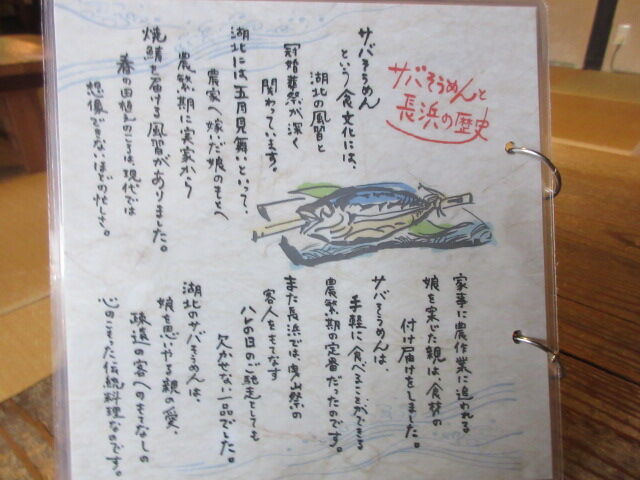 サバそうめんと
長浜の歴史
サバそうめん
という食文化には、
湖北の風習と
冠婚葬祭が深く
関わっています。
湖北には五月見舞いといって、
農家へ嫁いだ娘のもとへ
農繁期に実家から
焼鯖を届ける風習がありました。
春の田植えのころは、現代では
想像できないほどの忙しさ。
家事に農作業に追われる
娘を案じた親は食材の
付け届けをしました。
サバそうめんは、
手軽に食べることができる
農繁期の定番だったのです。
また長浜では曳山祭の
客人をもてなす
ハレの日のご馳走としても
欠かせない一品でした。
湖北のサバそうめんは、
娘を思いやる親の愛、
疎遠の客へのもてなしの
心のこもった伝統料理なのです。